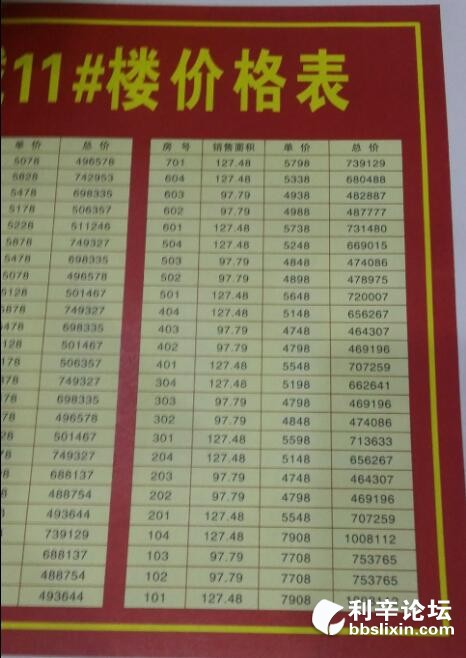 11#楼价格表
单价 总价 房号 销售面积 单价 总价
5078 496578 701 127.48 5798 739129
5828 742953 604 127.48 5338 680488
5478 698335 603 97.79 4938 482887
5178 506357 602 97.79 4988 487777
5228 511246 601 127.48 5738 731480
5878 749327 504 127.48 5248 669015
5478 698335 503 97.79 4848 474086
5078 496578 502 97.79 4898 478975
5128 501467 501 127.48 5648 720007
878 749327 404 127.48 5148 656267
478 698335 403 97.79 4748 464307
128 501467 402 97.79 4798 469196
178 506357 401 127.48 5548 707259
78 749327 304 127.48 5198 662641
78 698335 303 97.79 4798 469196
78 496578 302 97.79 4848 474086
28 501467 301 127.48 5598 713633
78 749327 204 127.48 5148 656267
8 688137 203 97.79 4748 464307
8 488754 202 97.79 4798 469196
8 493644 201 127.48 5548 707259
739129 104 127.48 7908 1008112
688137 103 97.79 7708 753765
488754 102 97.79 7708 753765
493644 101 127.48 7908
利辛论坛
bbslixin.com